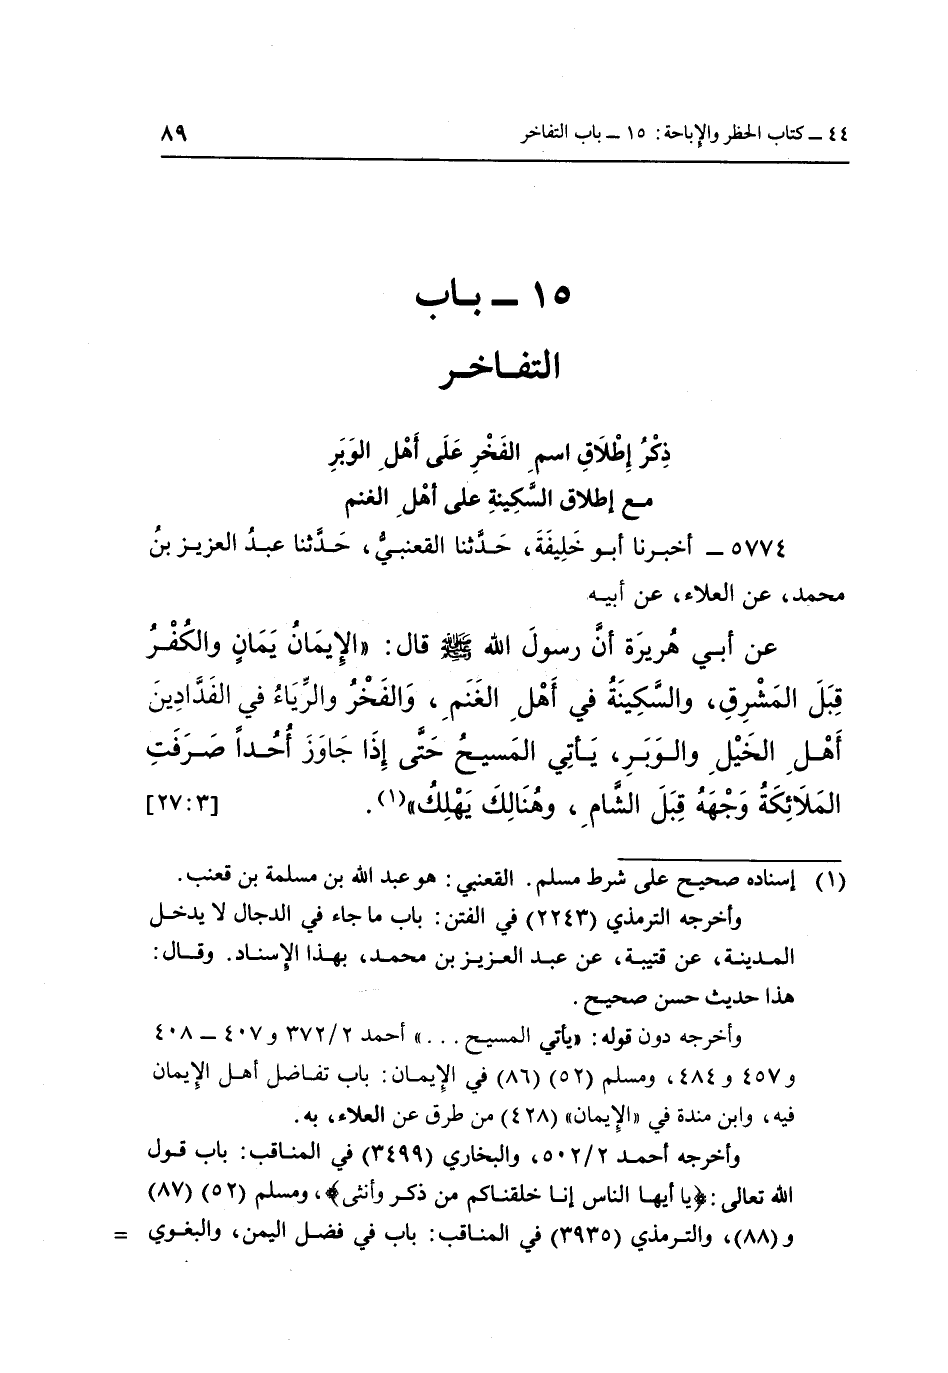 ٤٤ ــ كتاب الحظر والإباحة: ١٥ ــ باب التفاخر ٨٩
١٥ ــ بـاب
التفـاخـر
ذِكْرُ إِطْلَاقِ اسمِ الفَخْرِ عَلَى أَهْلِ الوَبَرِ
مـع إطلاق السَّكِينةِ على أهْلِ الغنم
٥٧٧٤ ــ أخبـرنا أبـو خَلِيفَةَ، حَـدَّثنا القعنبـيُّ، حَـدَّثنا عبـدُ العزيـز بنُ
محمد، عن العلاء، عن أبيـه
عن أبـي هُريرَة أنَّ رسولَ الله ﷺ قال: «الإِيمَانُ يَمَانٍ والكُفْـرُ
قِبَلَ المَشْرِقِ، والسَّكِينَةُ في أَهْلِ الغَنَمِ، وَالفَخْرُ والرِّيَاءُ في الفَدَّادِينَ
أَهْـلِ الخَيْلِ والـوَبَـرِ، يَـأتِي المَسيـحُ حَتَّى إِذَا جَاوَزَ أُحُـداً صَـرَفَتِ
المَلَائِكَةُ وَجْهَهُ قِبَلَ الشَّامِ، وهُنَالِكَ يَهْلِكُ»(١). [٣: ٢٧]
(١) إسناده صحيـح على شرط مسلم. القعنبي: هو عبد الله بن مسلمة بن قعنب.
وأخرجه الترمذي (٢٢٤٣) في الفتن: باب ما جاء في الدجال لا يدخـل
المـدينـة، عن قتيبة، عن عبـد العـزيـز بن محمـد، بهـذا الإسنـاد. وقـال:
هذا حديث حسن صحيـح.
وأخرجه دون قوله: «يأتي المسيـح . . .» أحمد ٢/٣٧٢ و ٤٠٧ ــ ٤٠٨
و ٤٥٧ و ٤٨٤، ومسلم (٥٢) (٨٦) في الإيمـان: باب تفـاضل أهـل الإيمان
فيه، وابن مندة في «الإيمان» (٤٢٨) من طرق عن العلاء، به.
وأخرجه أحمـد ٢/٥٠٢، والبخاري (٣٤٩٩) في المنـاقب: باب قـول
الله تعالى: ﴿يا أيهـا الناس إنـا خلقنـاكم من ذكـر وأنثى﴾، ومسلم (٥٢) (٨٧)
و (٨٨)، والتـرمذي (٣٩٣٥) في المنـاقب: باب في فضـل اليمن، والبغـوي =